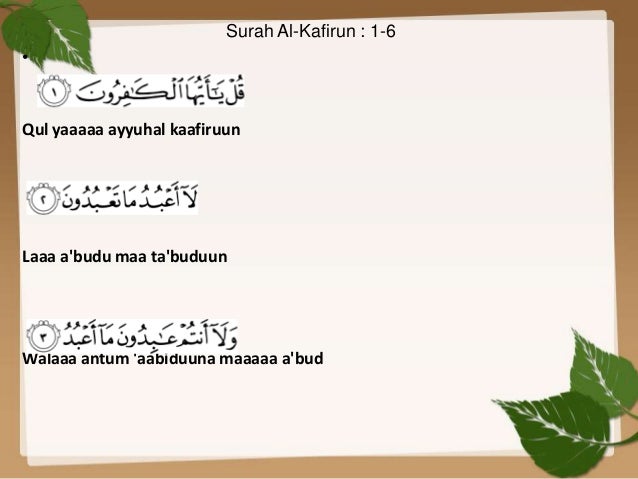 Surah Al-Kafirun : 1-6
•
قُلْ يَٰٓأَيُّهَا ٱلْكَٰفِرُونَ ١
Qul yaaaaa ayyuhal kaafiruun
لَآ أَعْبُدُ مَا تَعْبُدُونَ ٢
Laaa a'budu maa ta'buduun
وَلَآ أَنتُمْ عَٰبِدُونَ مَآ أَعْبُدُ ٣
Walaaa antum 'aabiduuna maaaaa a'bud